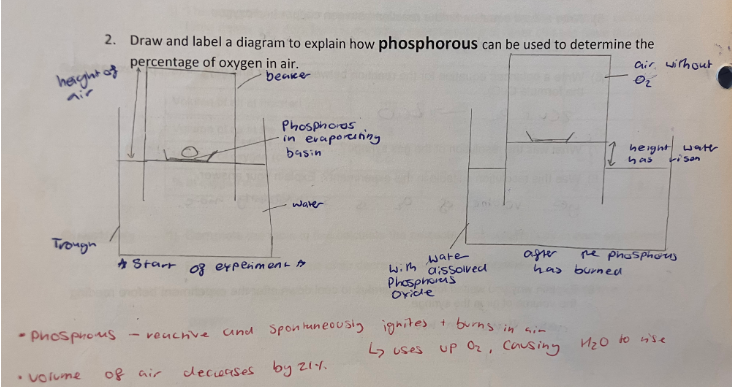 2. Draw and label a diagram to explain how phosphorous can be used to determine the
percentage of oxygen in air.
height of
air
beaker
Phosphoros
in evaporating
basin
water
Trough
* Start of experiment *
air without
O₂
height water
has risen
water
with dissolved
Phosphorus
Oxide
after the phosphorus
has burned
• Phosphorus - reactive and spontaneously ignites + burns in air
↳ uses up O₂, causing H₂O to rise
• volume of air decreases by 21%.